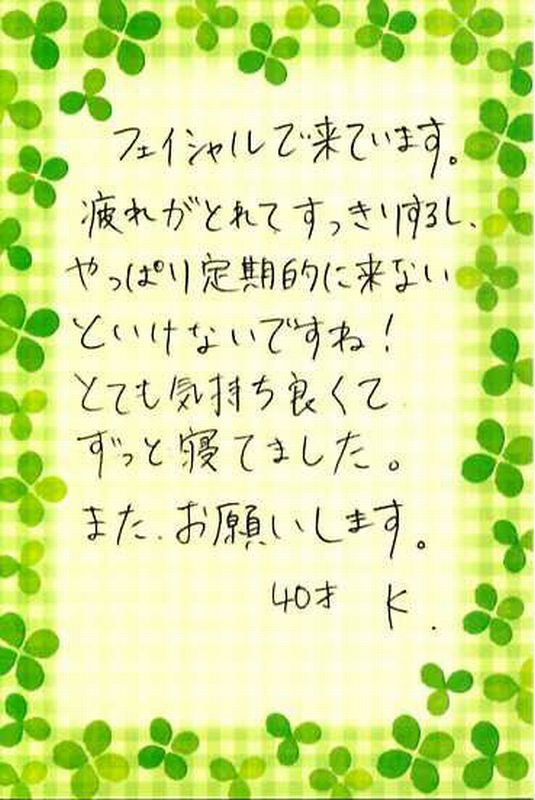 フェイシャルで来ています。
疲れがとれてすっきりするし、
やっぱり定期的に来ない
といけないですね！
とても気持ち良くて
ずっと寝てました。
また、お願いします。
40才 K.